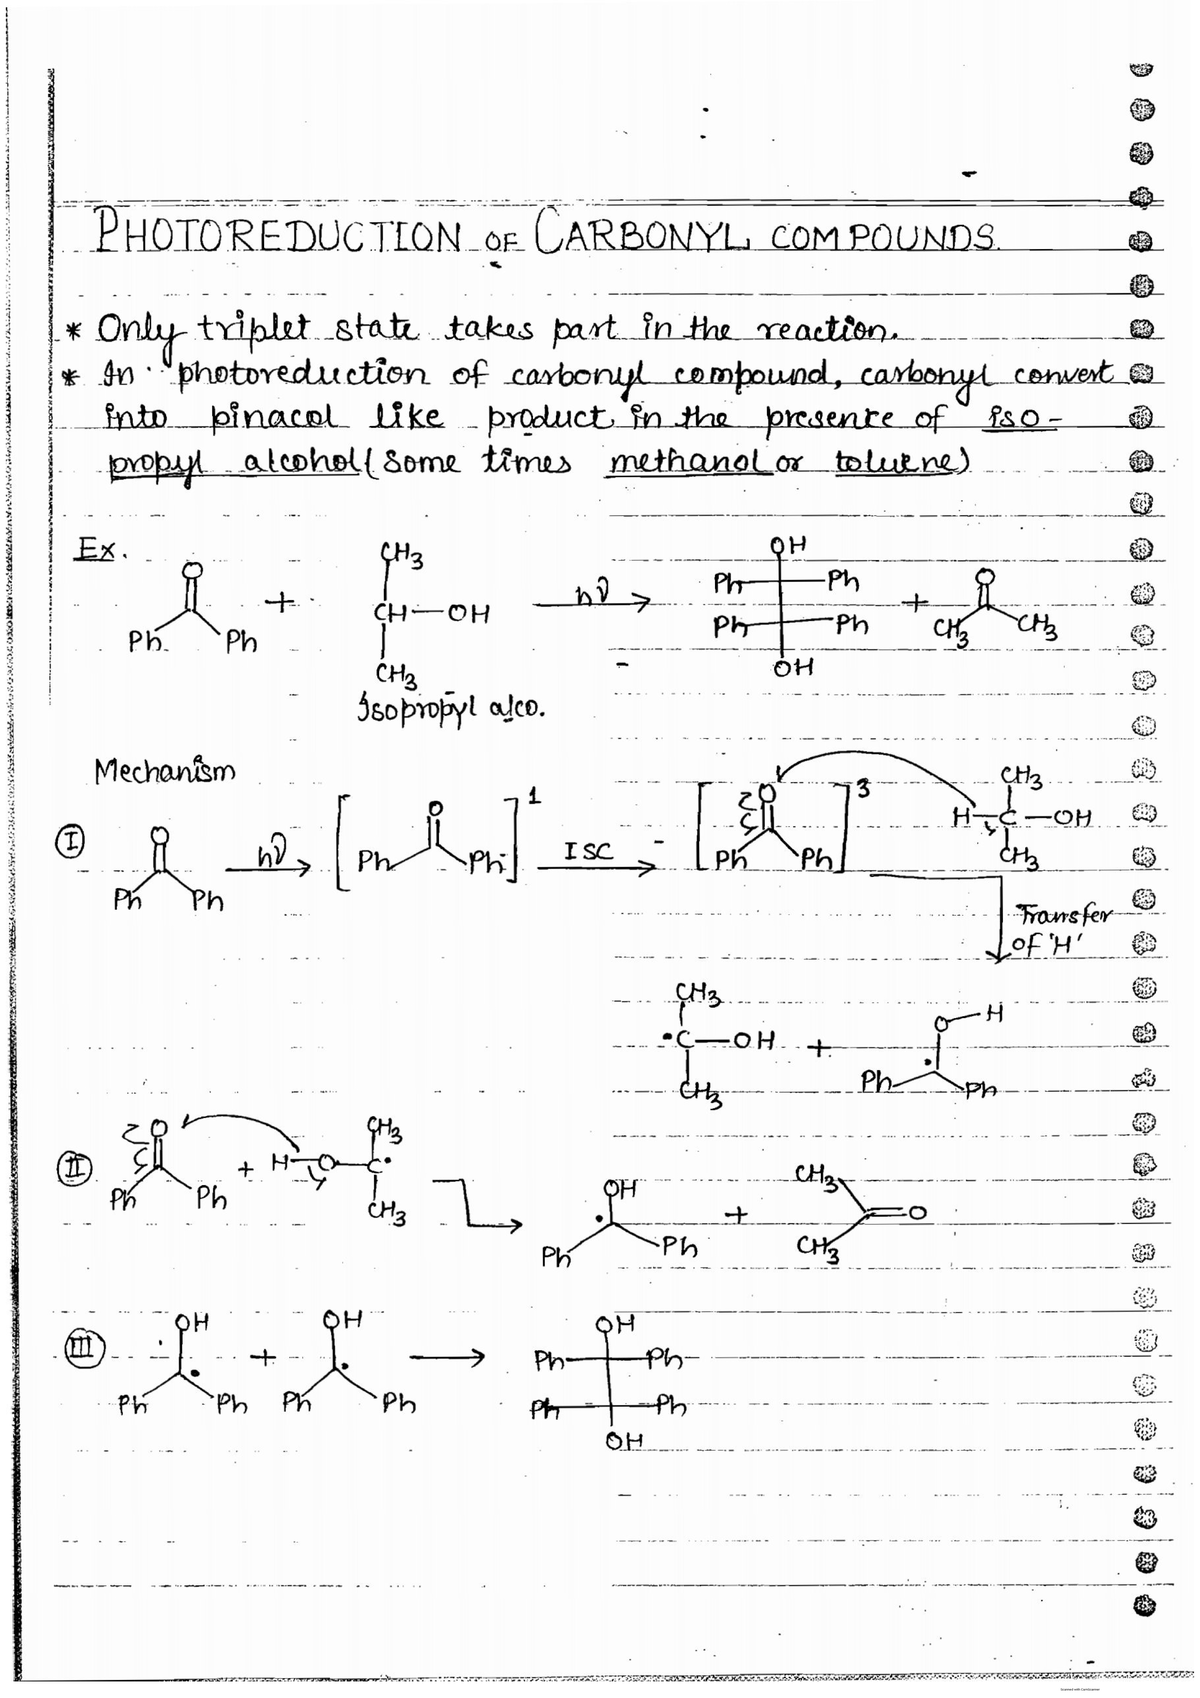 PHOTOREDUCTION OF CARBONYL COMPOUNDS.
* Only triplet state takes part in the reaction.
* In photoreduction of carbonyl compound, carbonyl convert
into pinacol like product in the presence of iso-
propyl alcohol (some times methanol or toluene)
Ex.
O
Ph Ph
+
CH3
CH—OH
CH3
Isopropyl alco.
hν
OH
Ph Ph
Ph Ph
OH
+
O
CH3 CH3
Mechanism
I
O
Ph Ph
hν
[
O
Ph Ph
]1
ISC
[
O
Ph Ph
]3
CH3
H—C—OH
CH3
Transfer
of 'H'
CH3
•C—OH
CH3
+
O—H
•
Ph Ph
II
O
Ph Ph
+
CH3
H—O—C•
CH3
OH
•
Ph Ph
+
CH3
=O
CH3
III
OH
•
Ph Ph
+
OH
•
Ph Ph
OH
Ph Ph
Ph Ph
OH
Scanned with CamScanner